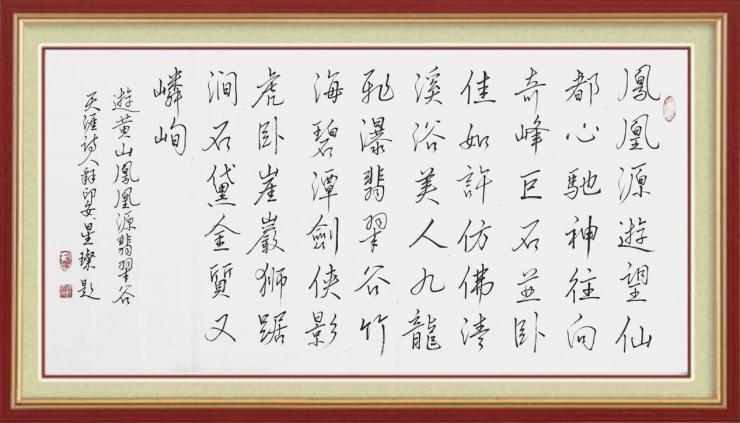 鳳凰源遊望仙
都心馳神往向
奇峰巨石並卧
佳如許仿佛清
溪浴美人九龍
飛瀑翡翠谷竹
海碧潭劍俠影
虎卧崖巖狮踞
澗石黛金質又
嶙峋
遊黄山鳳凰源翡翠谷
天涯詩人星璨題